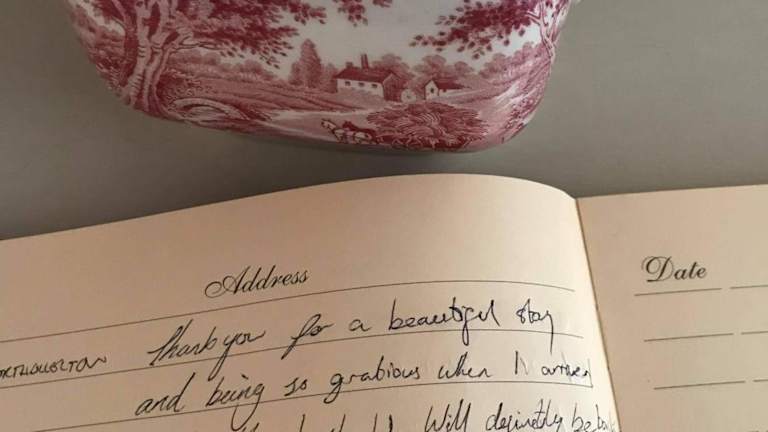 Address
Date
Thank you for a beautiful stay
and being so grabious when I arrived
Will definetly be back